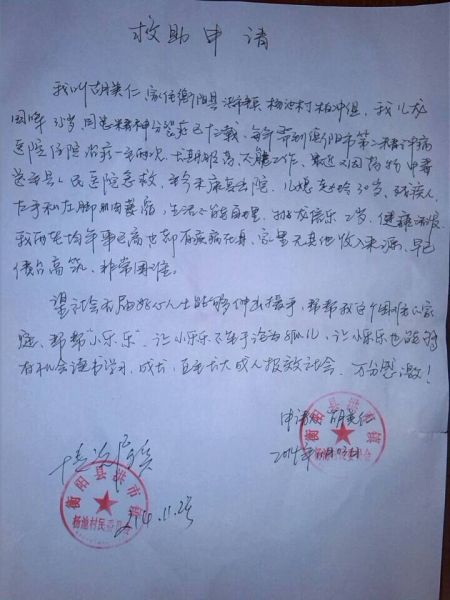 救助申请
我叫胡美仁,家住衡阳县洪市镇杨池村柏冲组,我儿龙
国晖 35岁,因患精神分裂症已十二载,每年需到衡阳市第二精神病
医院住院治疗一至两次,长期服药,不能工作,最近又因药物中毒
送至县人民医院急救,至今未康复出院,儿媳 30岁,残疾人,
左手和左脚肌肉萎缩,生活不能自理,孙龙倍乐 2岁,健康
我两老均年事已高也都有疾病在身,家里无其他收入来源,早已
债台高筑,非常困难。
望社会有关好心人士能够伸出援手,帮帮我这个困难的家
庭,帮帮"小乐乐",让小乐乐不至于沦为孤儿,让小乐乐也能够
有机会读书学习,成长,直至长大成人报效社会。万分感激!
申请人 胡美仁
2014年11月
情况属实
2014.11.25
衡阳县洪市镇
杨池村民委员会
衡阳县洪市镇
杨池村民委员会